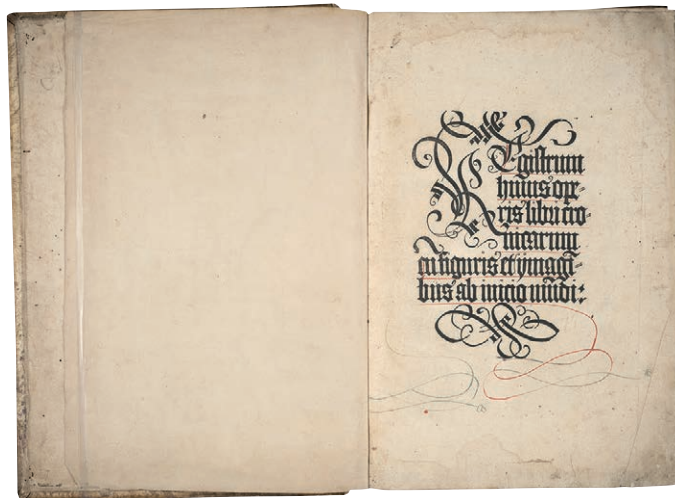 Registrum
huius ope-
ris libri cro-
nicarum
cū figuris et ymagī-
bus ab inicio mūdi: